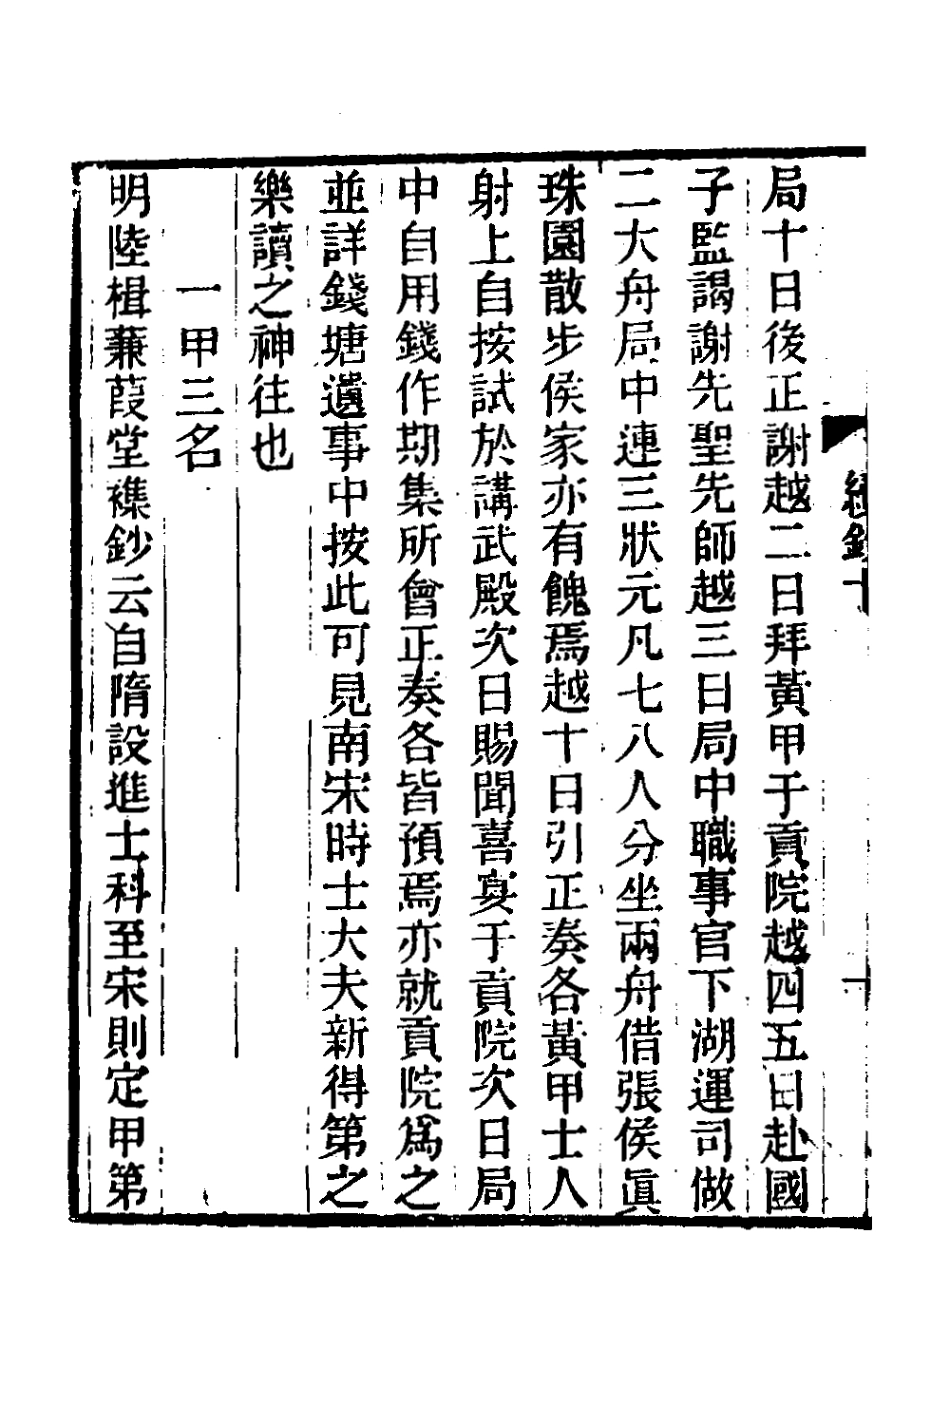 局十日後正謝越二日拜黃甲于貢院越四五日赴國
子監謁謝先聖先師越三日局中職事官下湖運司做
二大舟局中連三狀元凡七八人分坐兩舟借張侯眞
珠園散步侯家亦有餽焉越十日引正奏各黃甲士人
射上自按試於講武殿次日賜聞喜宴于貢院次日局
中自用錢作期集所會正奏各皆預焉亦就貢院爲之
並詳錢塘遺事中按此可見南宋時士大夫新得第之
樂讀之神往也
一甲三名
明陸楫蒹葭堂襍鈔云自隋設進士科至宋則定甲第